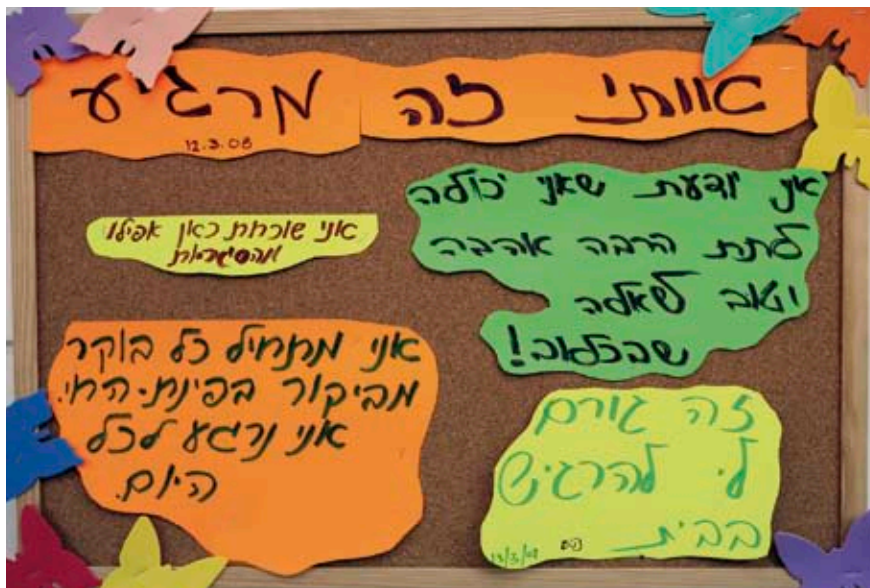 אותי זה מרגיע
12.3.08
אני יודעת שאני יכולה
לתת הרבה אהבה
וטוב לשאלה
שבכלוב!
אני שוכחת כאן אפילו
מהסיגריות
אני מתחיל כל בוקר
מביקור בפינת-החי.
אני נרגע לכל
היום.
זה גורם
לי להרגיש
בבית